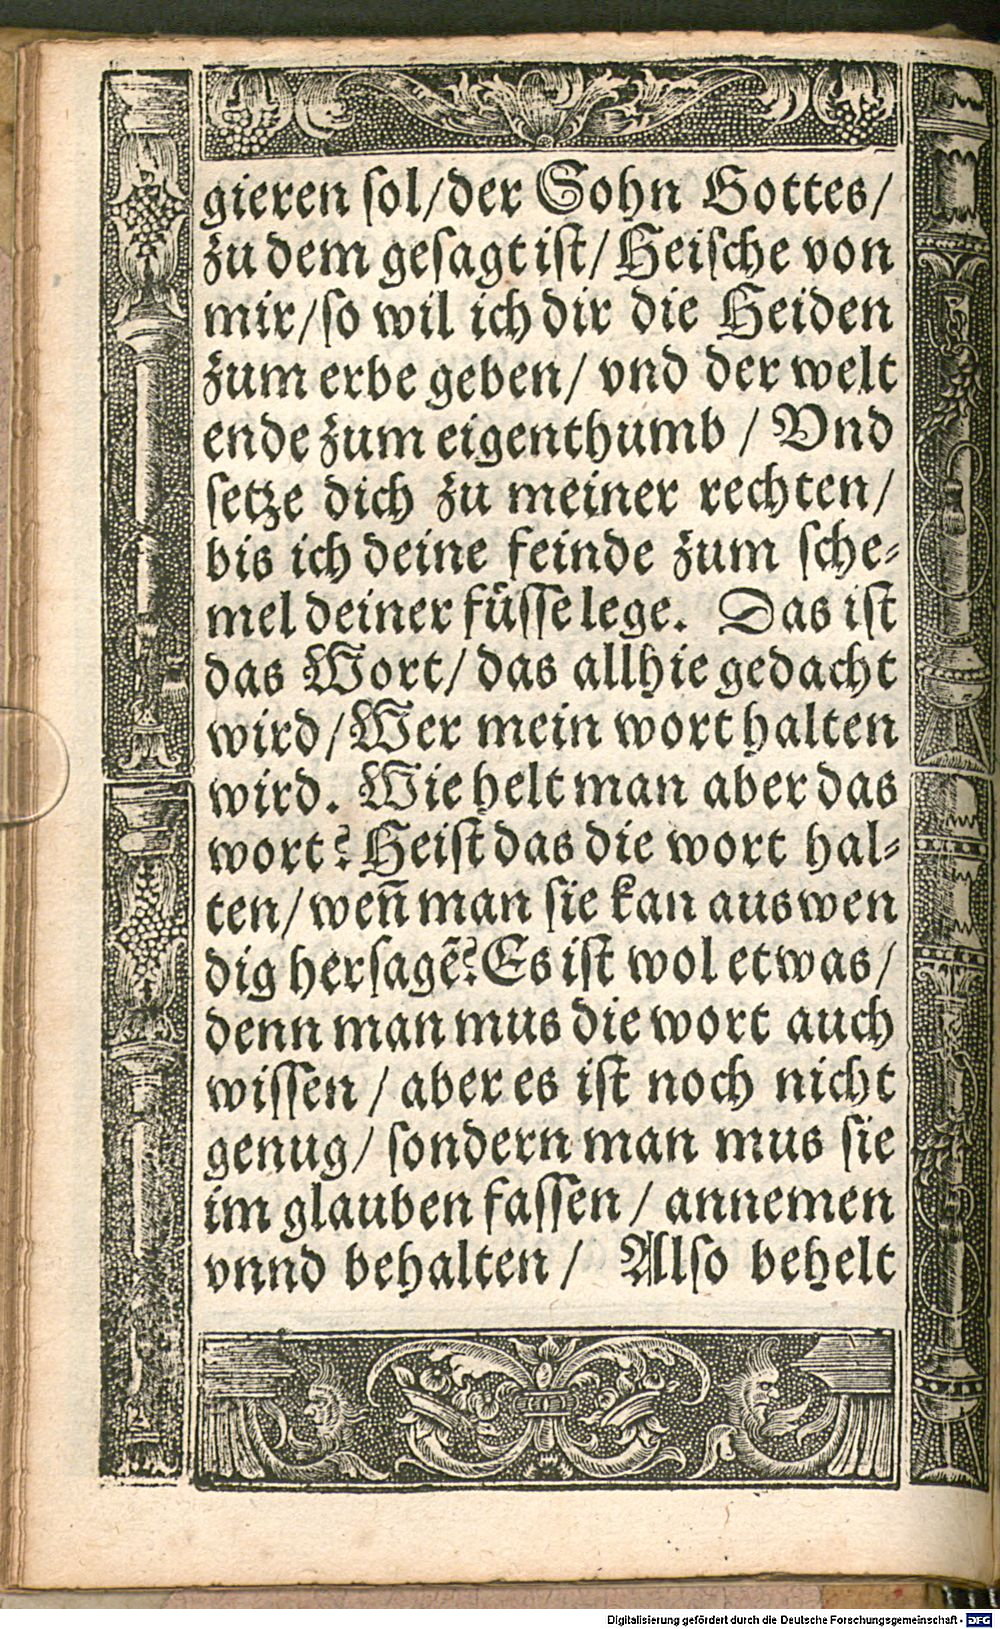 gieren sol/der Sohn Gottes/
zu dem gesagt ist/Heische von
mir/so wil ich dir die Heiden
zum erbe geben/ vnd der welt
ende zum eigenthumb / Vnd
setze dich zu meiner rechten/
bis ich deine feinde zum sche-
mel deiner füsse lege. Das ist
das Wort/ das allhie gedacht
wird/Wer mein wort halten
wird. Wie helt man aber das
wort? Heist das die wort hal-
ten/wen̄ man sie kan auswen
dig hersagē? Es ist wol etwas/
denn man mus die wort auch
wissen / aber es ist noch nicht
genug/ sondern man mus sie
im glauben fassen / annemen
vnnd behalten / Also behelt
Digitalisierung gefördert durch die Deutsche Forschungsgemeinschaft - DFG